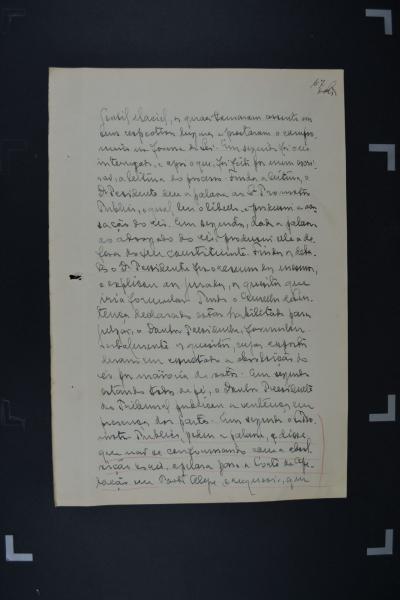 67
Gentil Maciel, os quaes tomaram assento em
seus respectivos lugares e prestaram o compro
misso na forma da lei. Em seguida foi o réo
interrogado, e apos o que, foi feita por mim escri
vão, a leitura do processo. Finda a leitura, o
Dr. Presidente deu a palavra ao Dr. Promotor
Publico, o qual leu o libello e produziu a accu
sação do réo. Em seguida, dada a palavra
ao advogado do réo produziu elle a de
feza do seu constituinte. Findos os deba
tes o Dr. Presidente fez o resumo dos mesmos,
e explicou aos jurados, os quesitos que
iria formular. Tendo o Conselho de Sen
tença declarado estar habilitado para
julgar, o Doutor Presidente, formulou
verbalmente os quesitos, cujas respostas
deram em resultado a absolvição do
réo por maioria de votos. Em seguida
estando todos de pé, o Doutor Presidente
do Tribunal publicou a sentença em
presença das partes. Em seguida o
Publico, pediu a palavra, e disse
que não se conformando com a absol
vição do réo, apelava para a Corte de Ape
lação em Porto Alegre, e requeria, que